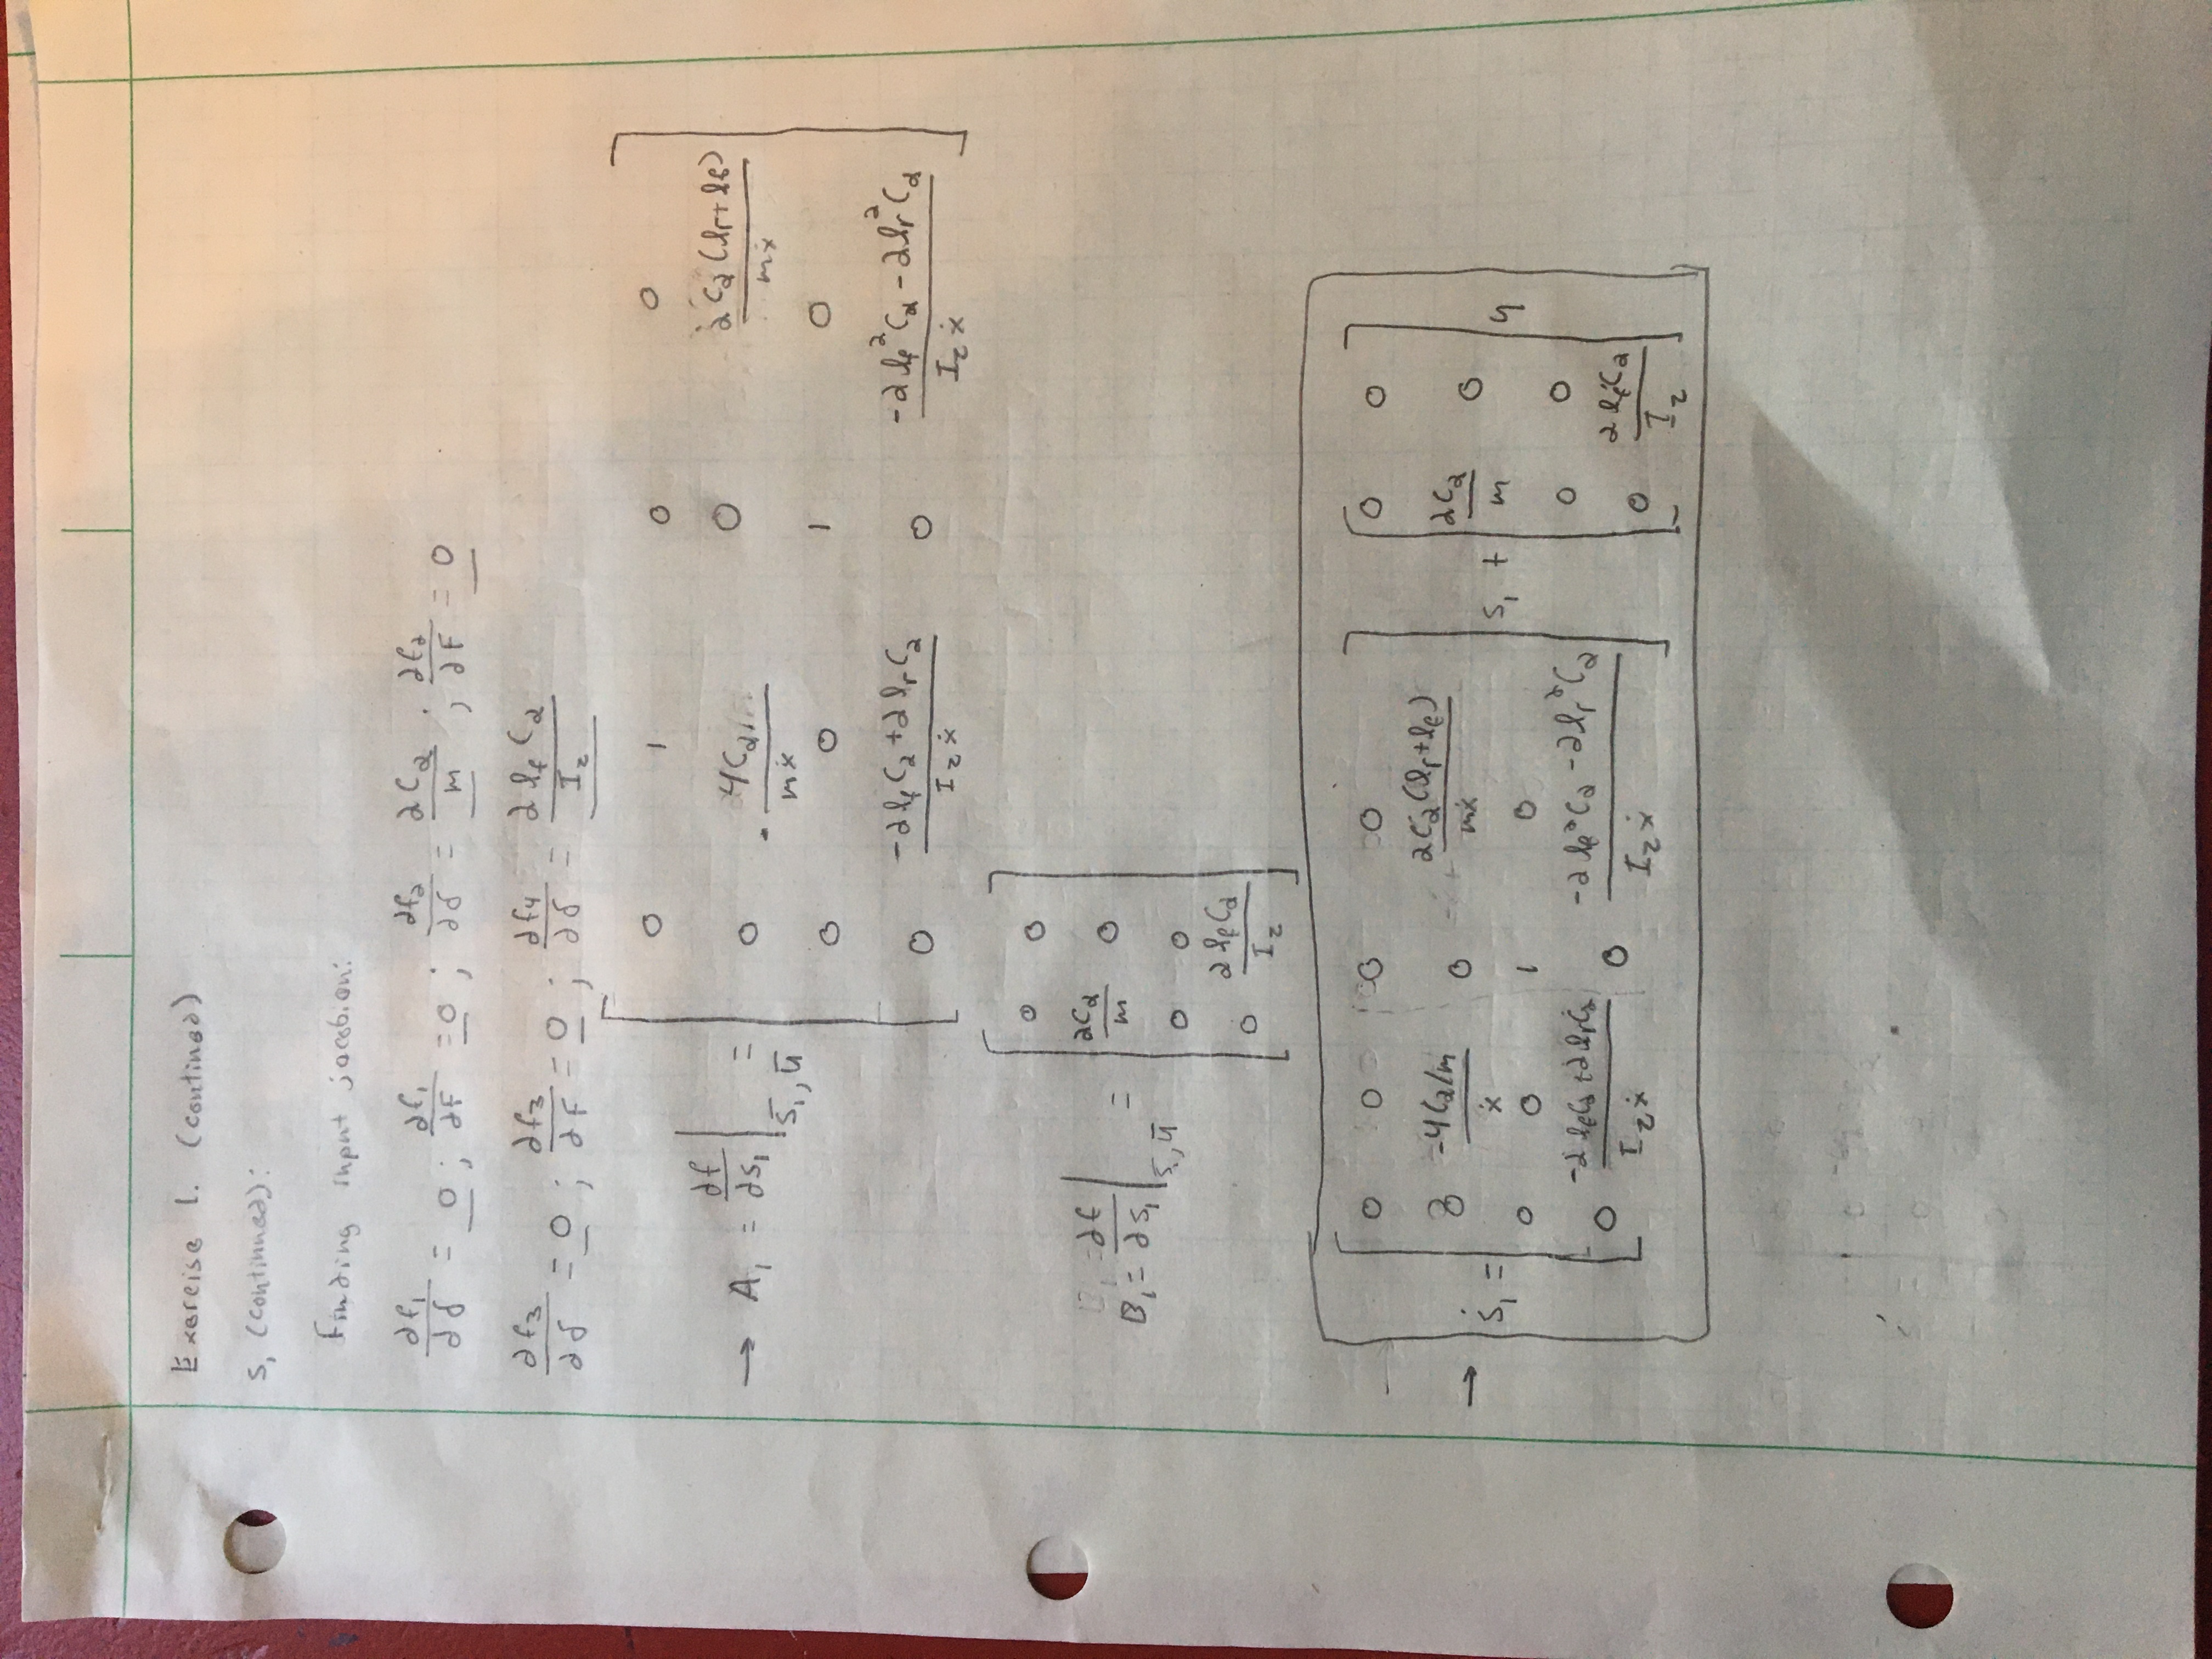 Exercise 1. (contined)
S₁ (continued):
Finding input jacobian:
∂f₁/∂δ = 0 ; ∂f₁/∂F = 0 ; ∂f₂/∂δ = 2Cα/m ; ∂f₂/∂F = 0
∂f₃/∂δ = 0 ; ∂f₃/∂F = 0 ; ∂f₄/∂δ = 2lfCα/Iz
→ A₁ = ∂f/∂s₁ |s̄₁, ū = [
0 1 0 0
0 -4Cα/mẋ 0 2Cα(lr+lf)/mẋ
0 0 1 0
0 (-2lfCα+2lrCα)/Izẋ 0 (-2lf²Cα-2lr²Cα)/Izẋ ]
B₁ = ∂f/∂s₁ |s̄₁, ū = [
0 0
2Cα/m 0
0 0
0 2lfCα/Iz ]
→ ṡ₁ = [
0 0 0 0
0 (-4Cα/m)/ẋ 0 2Cα(lr+lf)/mẋ
0 0 1 0
0 (-2lfCα+2lrCα)/Izẋ 0 (-2lf²Cα-2lr²Cα)/Izẋ ] s₁ + [
0 0
2Cα/m 0
0 0
0 2lfCα/Iz ] u